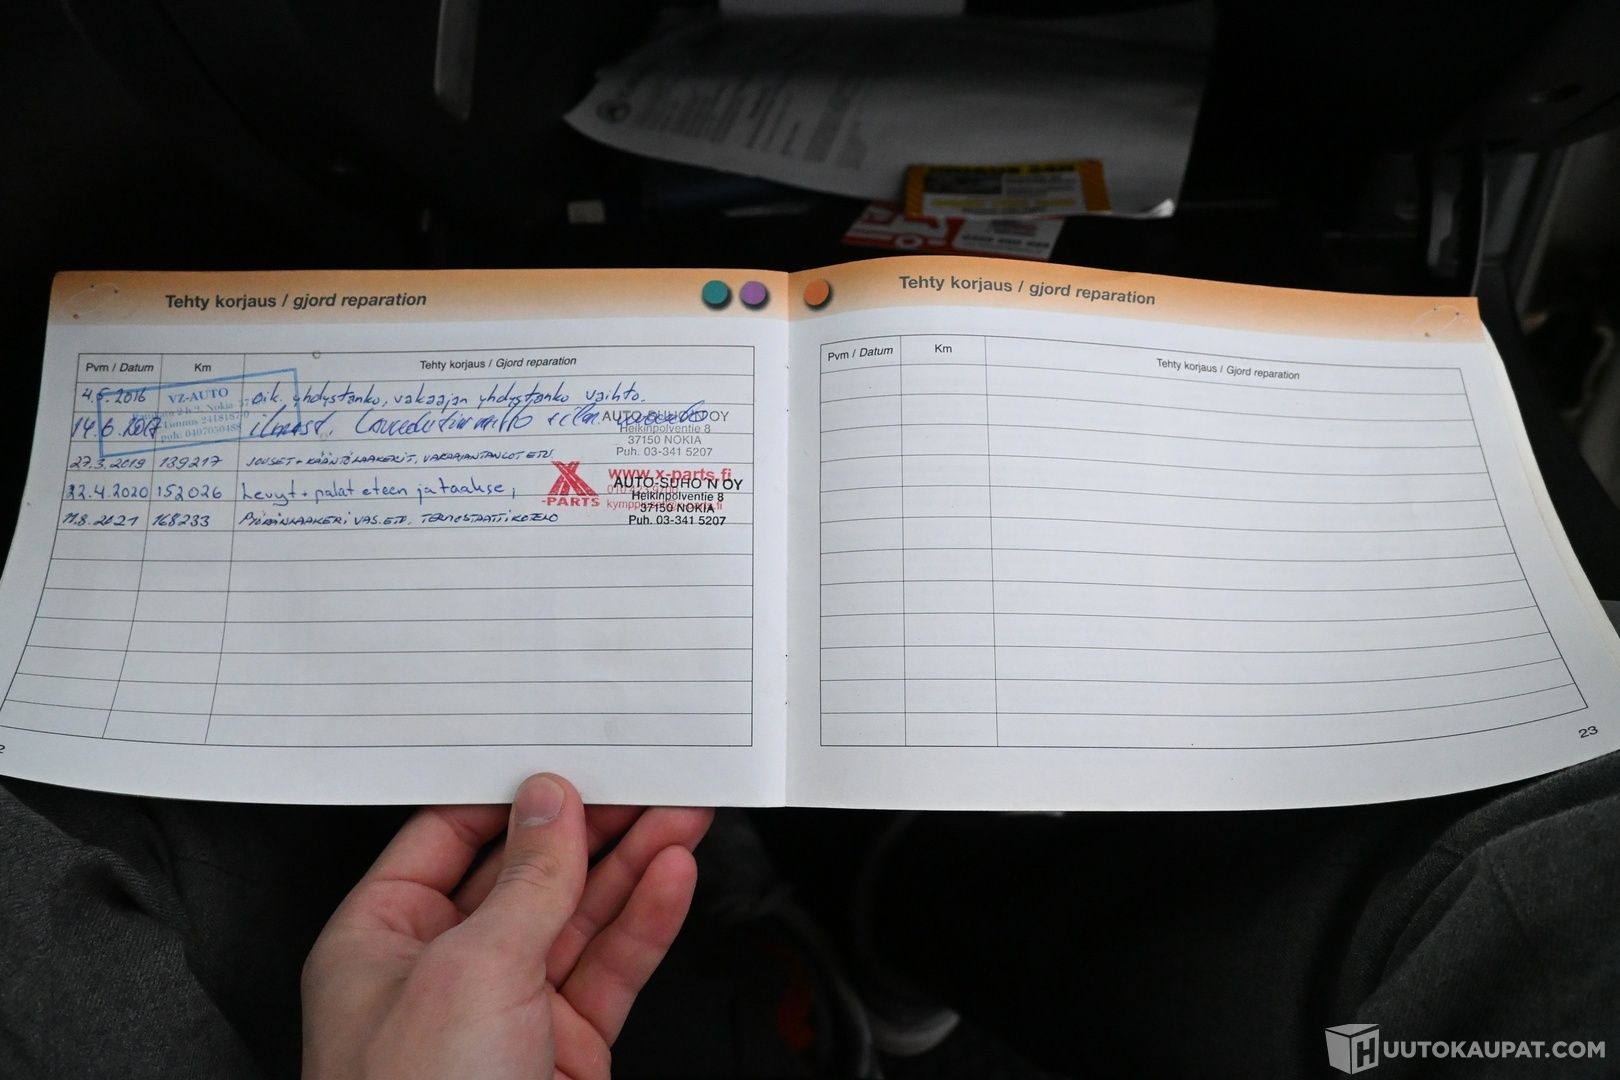 Tehty korjaus / gjord reparation
Pvm / Datum
Km
Tehty korjaus / Gjord reparation
4.5.2016
VZ-AUTO
oik. yhdystanko, vakaajan yhdystanko vaihto.
14.6.2017
ilmast.
AUTO-SUHO N OY
Heikinpolventie 8
37150 NOKIA
Puh. 03-341 5207
27.3.2019 139217 JOUSET + KÄÄNTÖLAAKERIT, VAKAAJANTANGOT ETU
22.4.2020 152026 Levyt + palat eteen ja taakse,
X-PARTS
www.x-parts.fi
AUTO-SUHO N OY
Heikinpolventie 8
37150 NOKIA
Puh. 03-341 5207
11.8.2021 168233 PYÖRÄNLAAKERI VAS. ETU, TERMOSTAATTIKOTELO
Tehty korjaus / gjord reparation
Pvm / Datum
Km
Tehty korjaus / Gjord reparation
23
HUUTOKAUPAT.COM